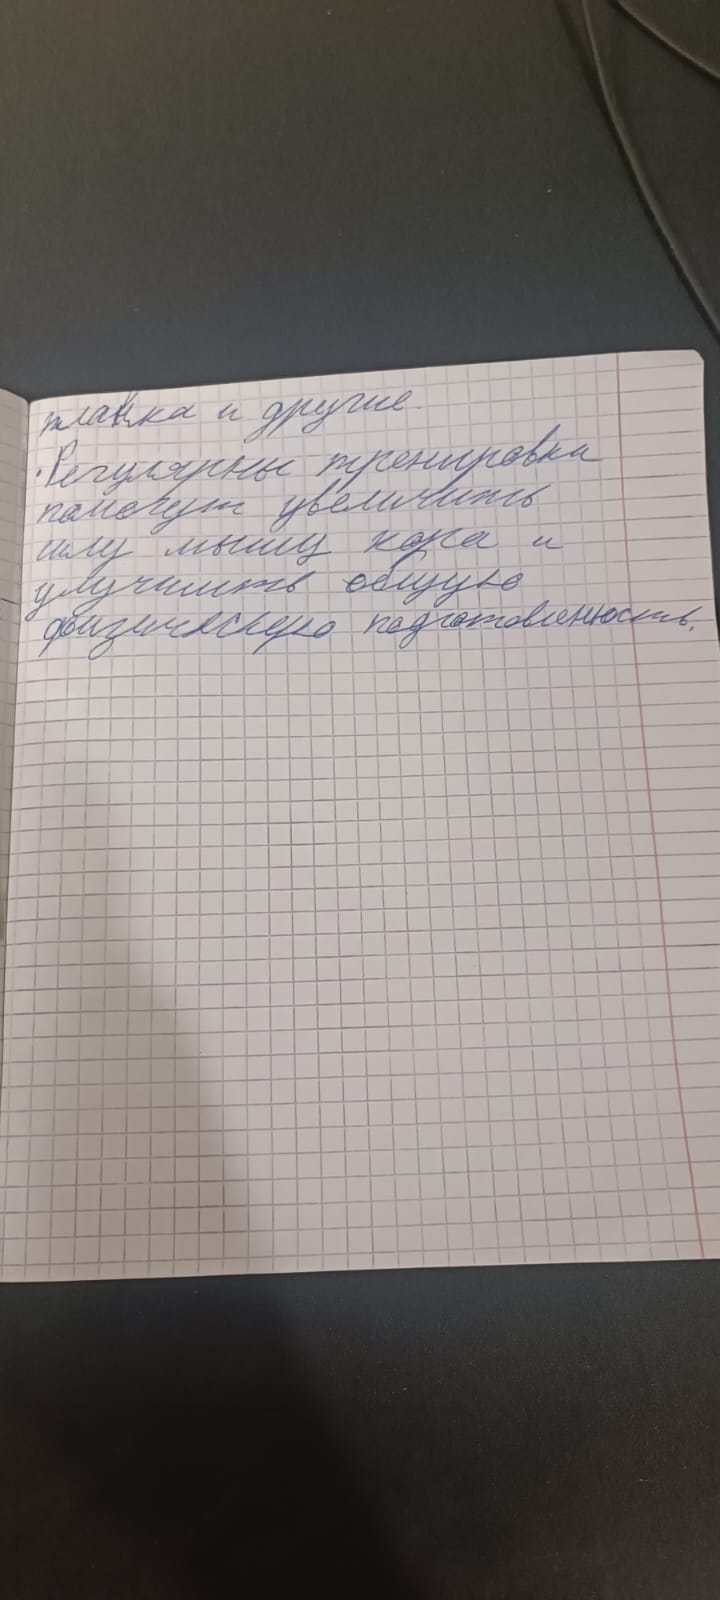 планка и другие.
·Регулярны тренировки
помогут увеличить
силу мышц кора и
улучшить общую
физическую подготовленность.